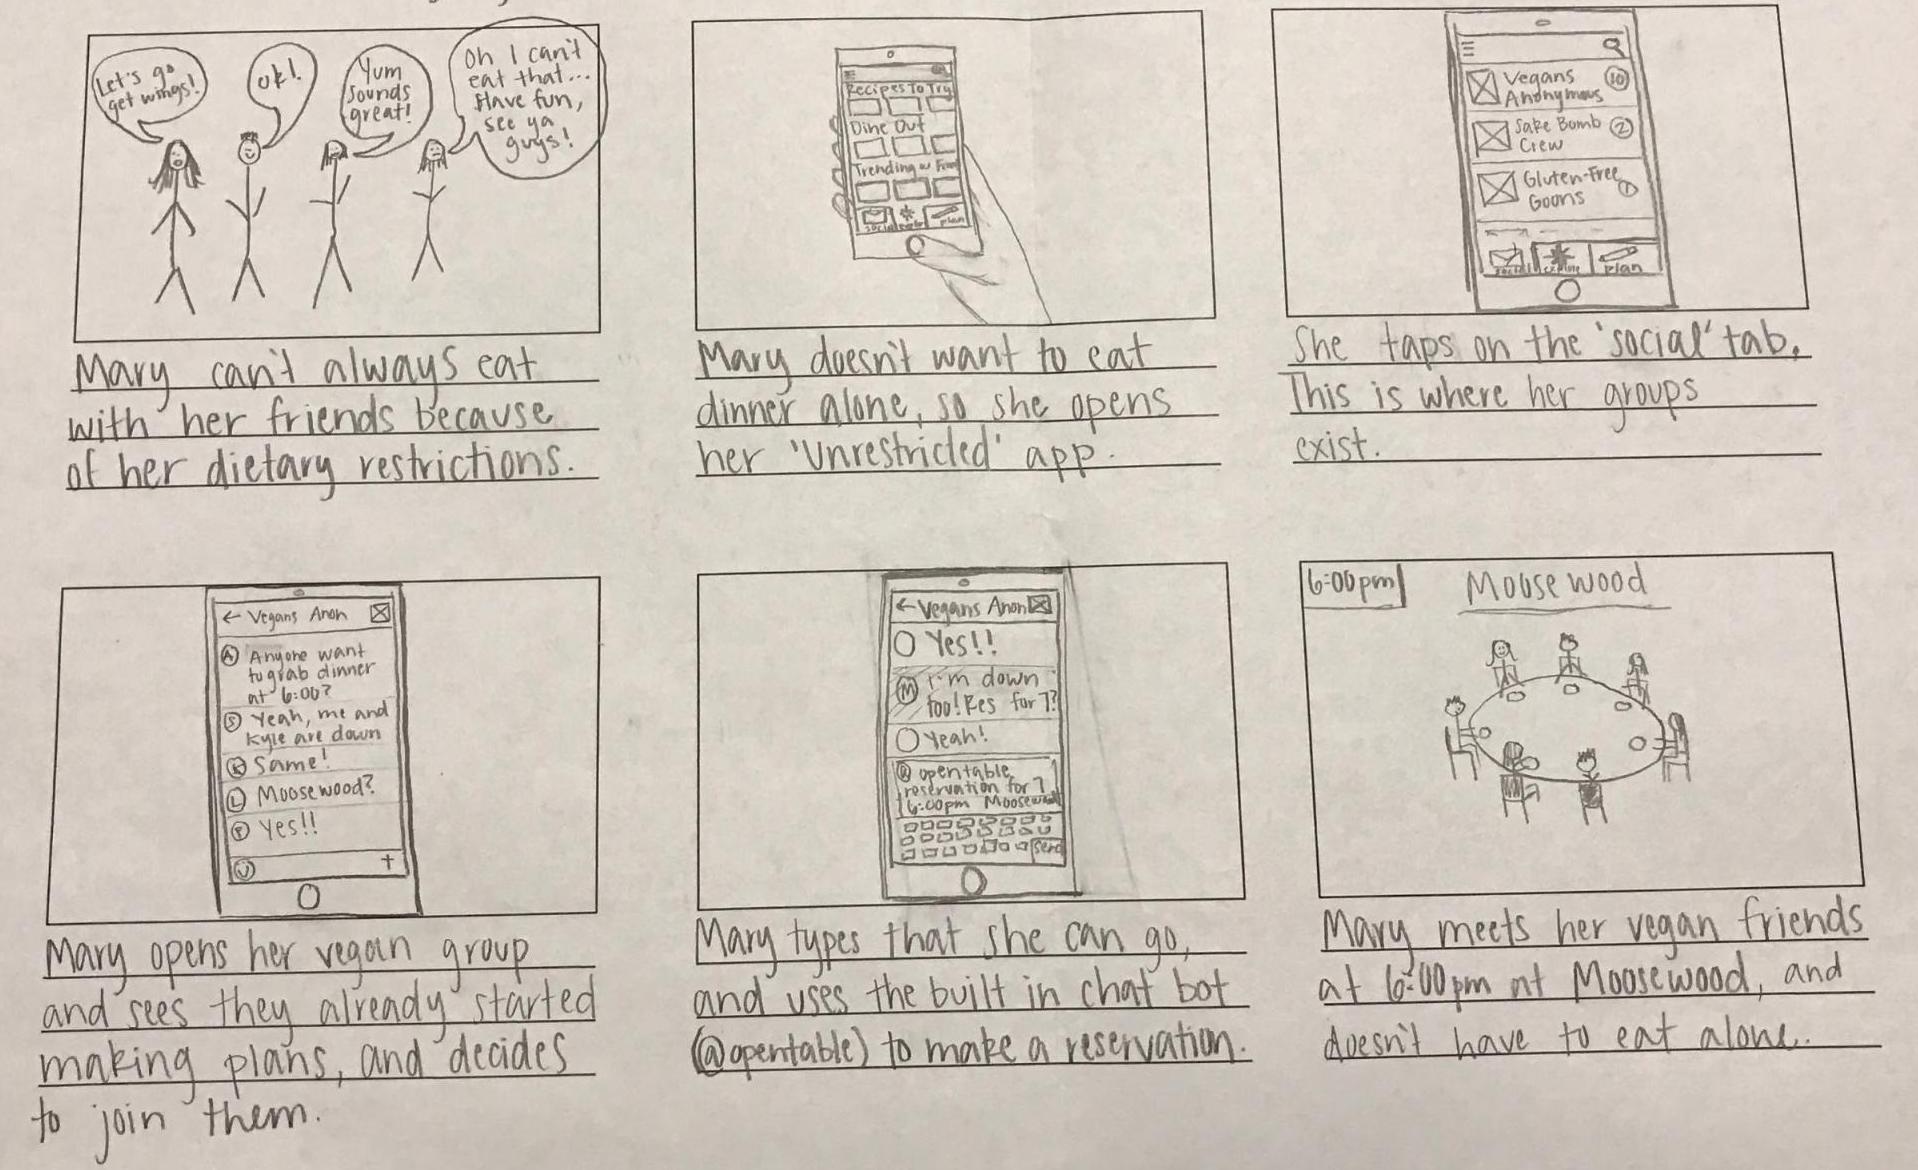 Let's go
get wings!
ok!
Yum
sounds
great!
Oh I can't
eat that...
Have fun,
see ya
guys!
Mary can't always eat
with her friends because
of her dietary restrictions.
Recipes To Try
Dine Out
Trending
social
plan
Mary doesn't want to eat
dinner alone, so she opens
her 'Unrestricted' app.
Vegans
Anonymous
10
Sake Bomb
Crew
2
Gluten-Free
Goons
1
social
explore
plan
She taps on the 'social' tab.
This is where her groups
exist.
← Vegans Anon
A Anyone want
to grab dinner
at 6:00?
S Yeah, me and
Kyle are down
K Same!
L Moosewood?
Yes!!
+
Mary opens her vegan group
and sees they already started
making plans, and decides
to join them.
← Vegans Anon
Yes!!
M I'm down
too! Res for 7?
Yeah!
@ opentable
reservation for 7
6:00pm Moosewood
send
Mary types that she can go,
and uses the built in chat bot
(@opentable) to make a reservation.
6:00pm
Moosewood
Mary meets her vegan friends
at 6:00pm at Moosewood, and
doesn't have to eat alone.